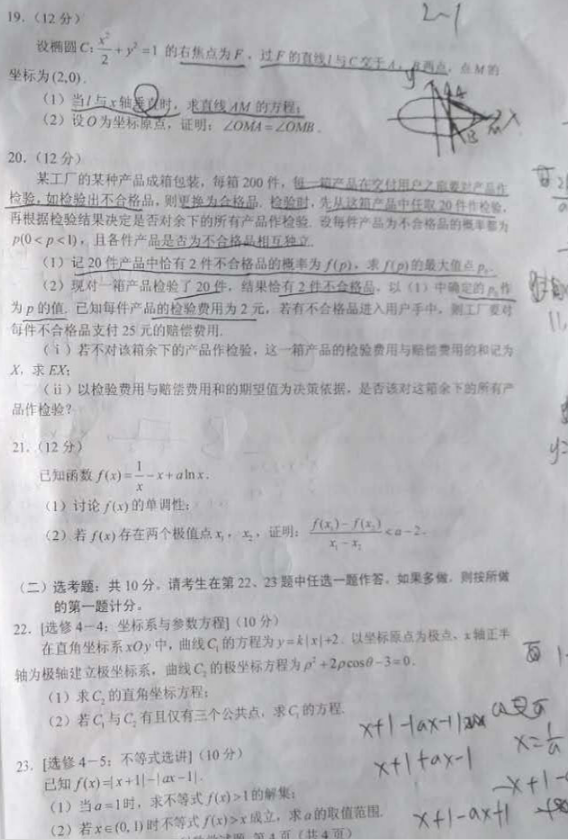 2~1
19.（12分）
设椭圆C: x²/2 + y² = 1 的右焦点为F，过F的直线l与C交于A，B两点，点M的
坐标为(2,0).
（1）当l与x轴垂直时，求直线AM的方程；
（2）设O为坐标原点，证明：∠OMA=∠OMB.
20.（12分）
某工厂的某种产品成箱包装，每箱200件，每一箱产品在交付用户之前要对产品作
检验，如检验出不合格品，则更换为合格品.检验时，先从这箱产品中任取20件作检验，
再根据检验结果决定是否对余下的所有产品作检验.设每件产品为不合格品的概率都为
p(0<p<1)，且各件产品是否为不合格品相互独立.
（1）记20件产品中恰有2件不合格品的概率为f(p)，求f(p)的最大值点p₀.
（2）现对一箱产品检验了20件，结果恰有2件不合格品，以（1）中确定的p₀作
为p的值.已知每件产品的检验费用为2元，若有不合格品进入用户手中，则工厂要对
每件不合格品支付25元的赔偿费用.
（i）若不对该箱余下的产品作检验，这一箱产品的检验费用与赔偿费用的和记为
X，求EX；
（ii）以检验费用与赔偿费用和的期望值为决策依据，是否该对这箱余下的所有产
品作检验？
21.（12分）
已知函数f(x)=1/x-x+alnx.
（1）讨论f(x)的单调性；
（2）若f(x)存在两个极值点x₁，x₂，证明：(f(x₁)-f(x₂))/(x₁-x₂)<a-2.
（二）选考题：共10分，请考生在第22、23题中任选一题作答，如果多做，则按所做
的第一题计分。
22.[选修4-4：坐标系与参数方程]（10分）
在直角坐标系xOy中，曲线C₁的方程为y=k|x|+2.以坐标原点为极点，x轴正半
轴为极轴建立极坐标系，曲线C₂的极坐标方程为ρ²+2ρcosθ-3=0.
（1）求C₂的直角坐标方程；
（2）若C₁与C₂有且仅有三个公共点，求C₁的方程.
x+1-|ax-1|
x=1/a
x+1+ax-1
23.[选修4-5：不等式选讲]（10分）
已知f(x)=|x+1|-|ax-1|.
（1）当a=1时，求不等式f(x)>1的解集；
（2）若x∈(0,1)时不等式f(x)>x成立，求a的取值范围.
x+1-ax+1
第4页（共4页）